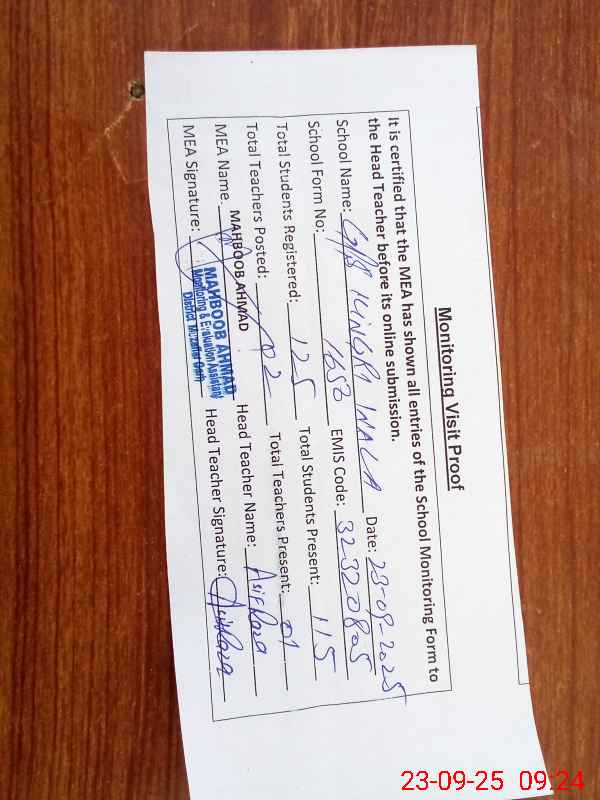 Monitoring Visit Proof
It is certified that the MEA has shown all entries of the School Monitoring Form to
the Head Teacher before its online submission.
School Name: GPS KINGRI WALA Date: 23-09-2025
School Form No: 1658 EMIS Code: 32320805
Total Students Registered: 125 Total Students Present: 115
Total Teachers Posted: 02 Total Teachers Present: 01
MEA Name: MAHBOOB AHMAD Head Teacher Name: Asif Raza
MEA Signature: Head Teacher Signature: Asif Raza
MAHBOOB AHMAD
Monitoring & Evaluation Assistant
District Muzaffar Garh
23-09-25 09:24